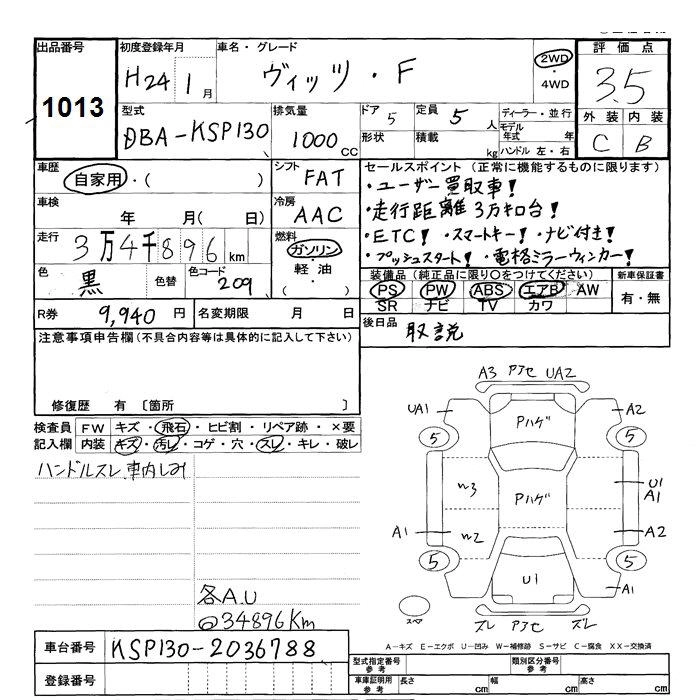 出品番号 初度登録年月 車名・グレード 評価点
1013 H24 1月 ヴィッツ・F 2WD・4WD 3.5
型式 排気量 ドア 5 定員 5人 ディーラー・並行 外装 内装
DBA-KSP130 1000CC 形状 積載 kg モデル年式 年 ハンドル 左・右 C B
車歴 シフト セールスポイント (正常に機能するものに限ります)
自家用・( ) FAT ・ユーザー買取車!
車検 冷房 ・走行距離3万キロ台!
年 月( 日) AAC ・ETC! ・スマートキー! ・ナビ付き!
走行 燃料 ・プッシュスタート! ・電格ミラーウィンカー!
3万4千896km ガソリン・軽油 ( )
色 黒 色替 色コード 209
装備品 (純正品に限り○をつけてください) 新車保証書
PS PW ABS エアB AW 有・無
SR ナビ TV カワ
R券 9,940円 名変期限 月 日 後日品 取説
注意事項申告欄 (不具合内容等は具体的に記入して下さい)
修復歴 有 〔箇所 〕
検査員 FW キズ・飛石・ヒビ割・リペア跡・×要
記入欄 内装 キズ・汚レ・コゲ・穴・スレ・キレ・破レ
ハンドルスレ、車内しみ
各A.U
@34896Km
A3 アアセ UA2
UA1 Pハゲ A2
5 5
W3 Pハゲ U1
A1
A1 W2 A2
5 U1 5
A1
スペア ズレ アアセ ズレ
A-キズ E-エクボ U-凹み W-補修跡 S-サビ C-腐食 XX-交換済
車台番号 KSP130-2036788
登録番号
型式指定番号 参考 類別区分番号 参考
車庫証明用 参考 長さ cm 幅 cm 高さ cm